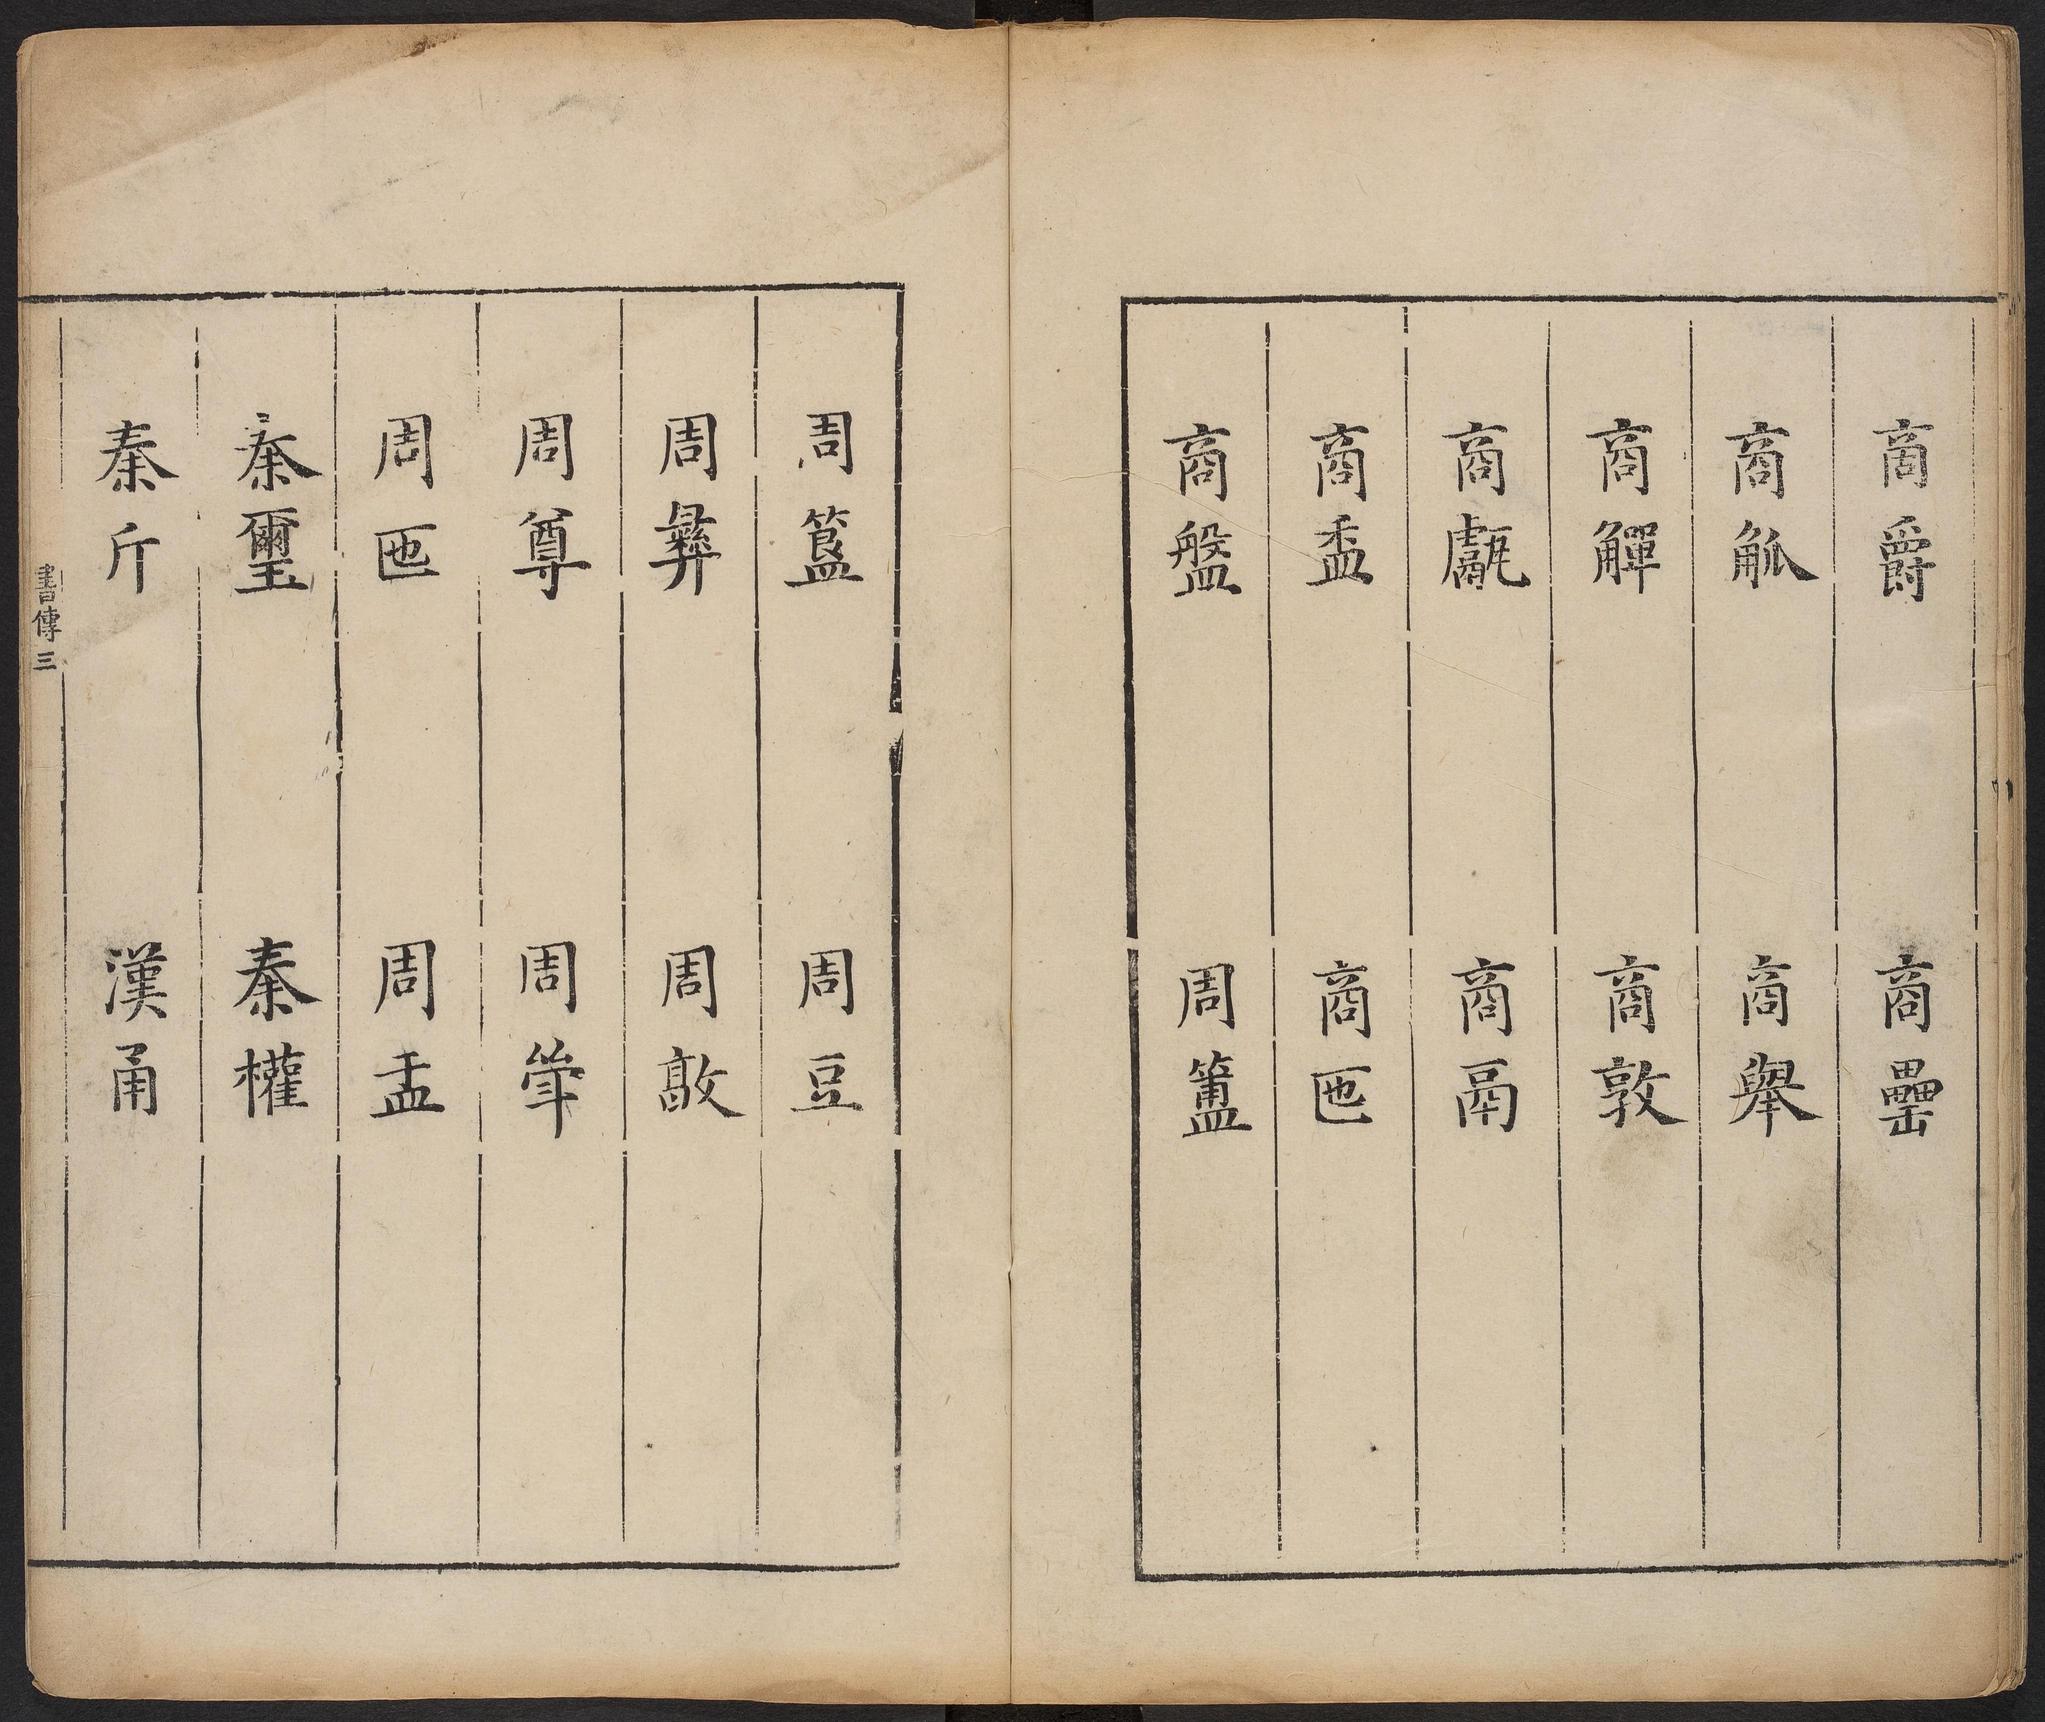 商爵 商罍
商觚 商舉
商觶 商敦
商甗 商鬲
商盉 商匜
商盤 周簠
周簋 周豆
周彝 周敦
周尊 周斝
周匜 周盂
秦璽 秦權
秦斤 漢甬
書傳三